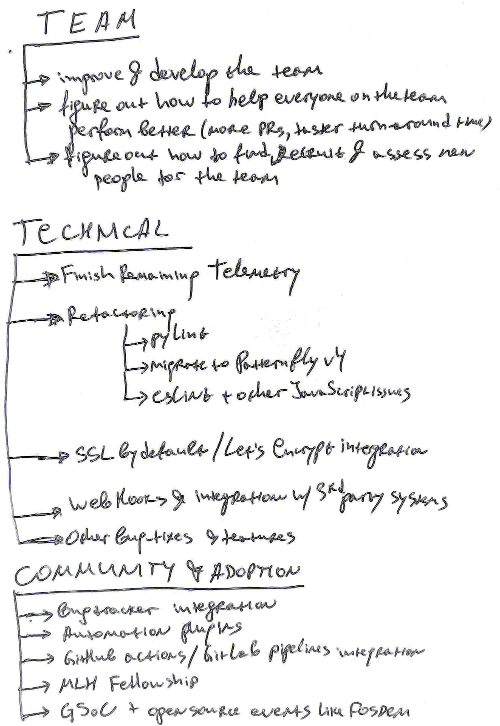 TEAM
improve & develop the team
figure out how to help everyone on the team
perform better (more PRs, faster turn-around time)
figure out how to find, recruit & assess new
people for the team
TECHNICAL
Finish Remaining Telemetry
Refactoring
pylint
migrate to Patternfly v4
eslint + other JavaScript issues
SSL by default / Let's Encrypt integration
Web Hooks & integration w/ 3rd party systems
Other bug-fixes & features
COMMUNITY & ADOPTION
Bugtracker integration
Automation plugins
GitHub actions / GitLab pipelines integration
MLH Fellowship
GSoC + open source events like FOSDEM